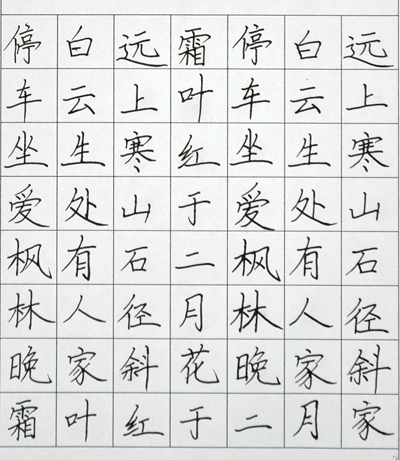 远上寒山石径斜家
白云生处有人家月
停车坐爱枫林晚二
霜叶红于二月花于
远上寒山石径斜红
白云生处有人家叶
停车坐爱枫林晚霜